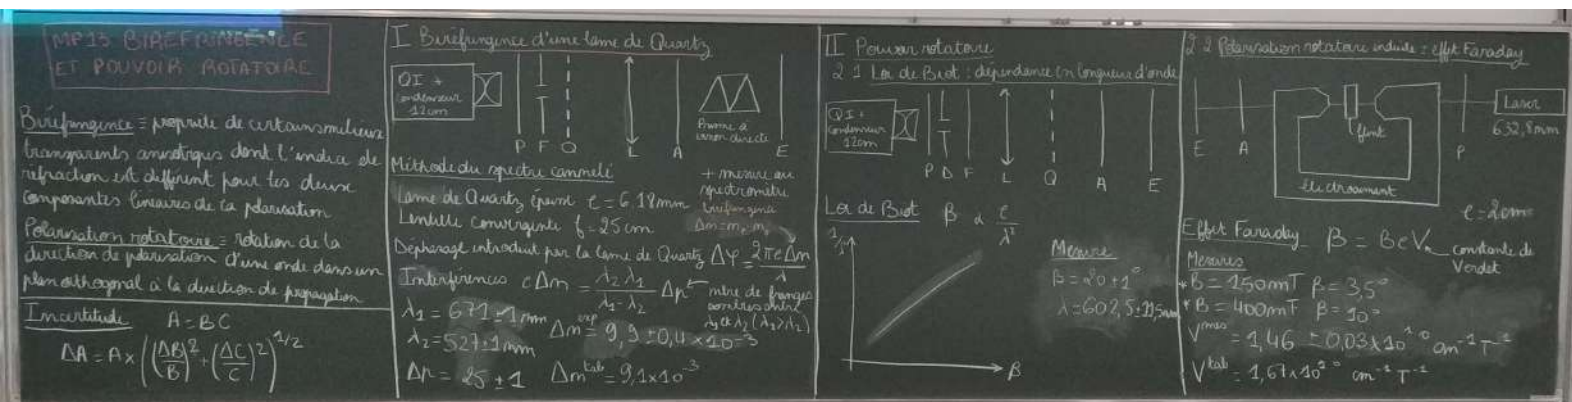 MP13 BIREFRINGENCE
ET POUVOIR ROTATOIRE
Biréfringence = propriété de certains milieux
transparents anisotropes dont l'indice de
réfraction est différent pour les deux
composantes linéaires de la polarisation
Polarisation rotatoire = rotation de la
direction de polarisation d'une onde dans un
plan orthogonal à la direction de propagation
Incertitude A = BC
ΔA = A × ((ΔB/B)² + (ΔC/C)²)^1/2
I Biréfringence d'une lame de Quartz
QI +
condenseur
12cm
P F Q L A
Prisme à
vision directe
E
Méthode du spectre cannelé
+ mesure au
spectromètre
biréfringence
Lame de Quartz épaisse e = 6.18mm
Lentille convergente f = 25cm
Déphasage introduit par la lame de Quartz Δφ = 2πeΔn/λ
Interférences eΔn = λ2 λ1/(λ1 - λ2) Δp
nbre de franges
sombres entre
λ1 et λ2 (λ1 > λ2)
λ1 = 671 ± 1 nm
λ2 = 527 ± 1 nm
Δn^exp = 9,9 ± 0,4 × 10^-3
Δp = 25 ± 1 Δn^tab = 9,1 × 10^-3
II Pouvoir rotatoire
2 1 Loi de Biot : dépendance en longueur d'onde
QI +
condenseur
12cm
P D F L Q A E
Loi de Biot β α e/λ²
1/λ²
β
Mesure
β = 20 ± 1°
λ = 602,5 ± 11,5nm
2 2 Polarisation rotatoire induite : effet Faraday
Laser
632,8nm
flint
E A P
électroaimant
e = 2cm
Effet Faraday β = BeV
constante de
Verdet
Mesures
* B = 150mT β = 3,5°
* B = 400mT β = 10°
V^mes = 1,46 ± 0,03 × 10^2 ° cm^-1 T^-1
V^tab = 1,67 × 10^2 ° cm^-1 T^-1